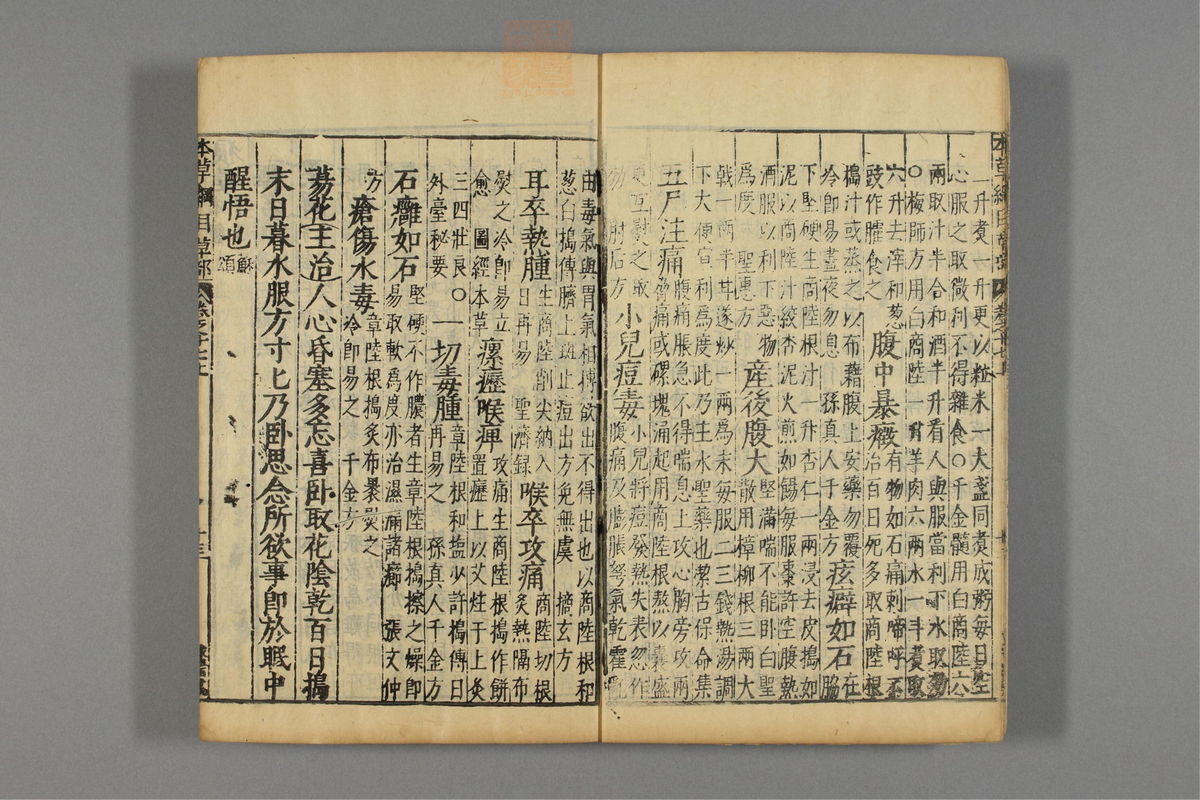 一升煮一升更以粒米一大盞同煮成粥每日空
心服之取微利不得雜食○千金髓用白商陸六
兩取汁半合和酒半升看人與服當利下水取
○梅師方用白商陸一升羊肉六兩水一斗煮取
六升去滓和葱
豉作臛食之
腹中暴癥
有物如石痛刺啼呼不
治百日死多取商陸根
擣汁或蒸之以布藉腹上安藥勿覆
冷卽易晝夜勿息 孫真人千金方
痃癖如石
在脇
下堅硬生商陸根汁一升杏仁一兩浸去皮擣如
泥以商陸汁絞杏泥火煎如餳每服棗許空腹熱
酒服以利下惡物
爲度 聖惠方
產後腹大
堅滿喘不能卧白聖
散用樟柳根三兩大
戟一兩半甘遂炒一兩爲末每服二三錢熱湯調
下大便宣利爲度此乃主水聖藥也潔古保命集
五尸注痛
腹痛脹急不得喘息上攻心胸旁攻兩
脇痛或磈塊涌起用商陸根熬以囊盛
更互熨之取
效 肘后方
小兒痘毒
小兒將痘發熱失表忽作
腹痛及膨脹弩氣乾霍亂
由毒氣與胃氣相摶欲出不得出也以商陸根和
葱白擣傅臍上斑止痘出方免無虞 摘玄方
耳卒熱腫
生商陸削尖納入
日再易 聖濟錄
喉卒攻痛
商陸切根
炙熱隔布
熨之冷卽易立
愈 圖經本草
瘰癧喉痺
攻痛生商陸根擣作餅
置癧上以艾炷于上灸
三四壯良○
外臺秘要
一切毒腫
章陸根和塩少許擣傅日
再易之 孫真人千金方
石癰如石
堅硬不作膿者生章陸根擣擦之燥卽
易取軟爲度亦治濕漏諸癤 張文仲
方
瘡傷水毒
章陸根擣炙布褁熨之
冷卽易之 千金方
蒻花主治人心昏塞多忘喜卧取花陰乾百日擣
末日暮水服方寸匕乃卧思念所欲事卽於眠中
醒悟也
蘇
頌